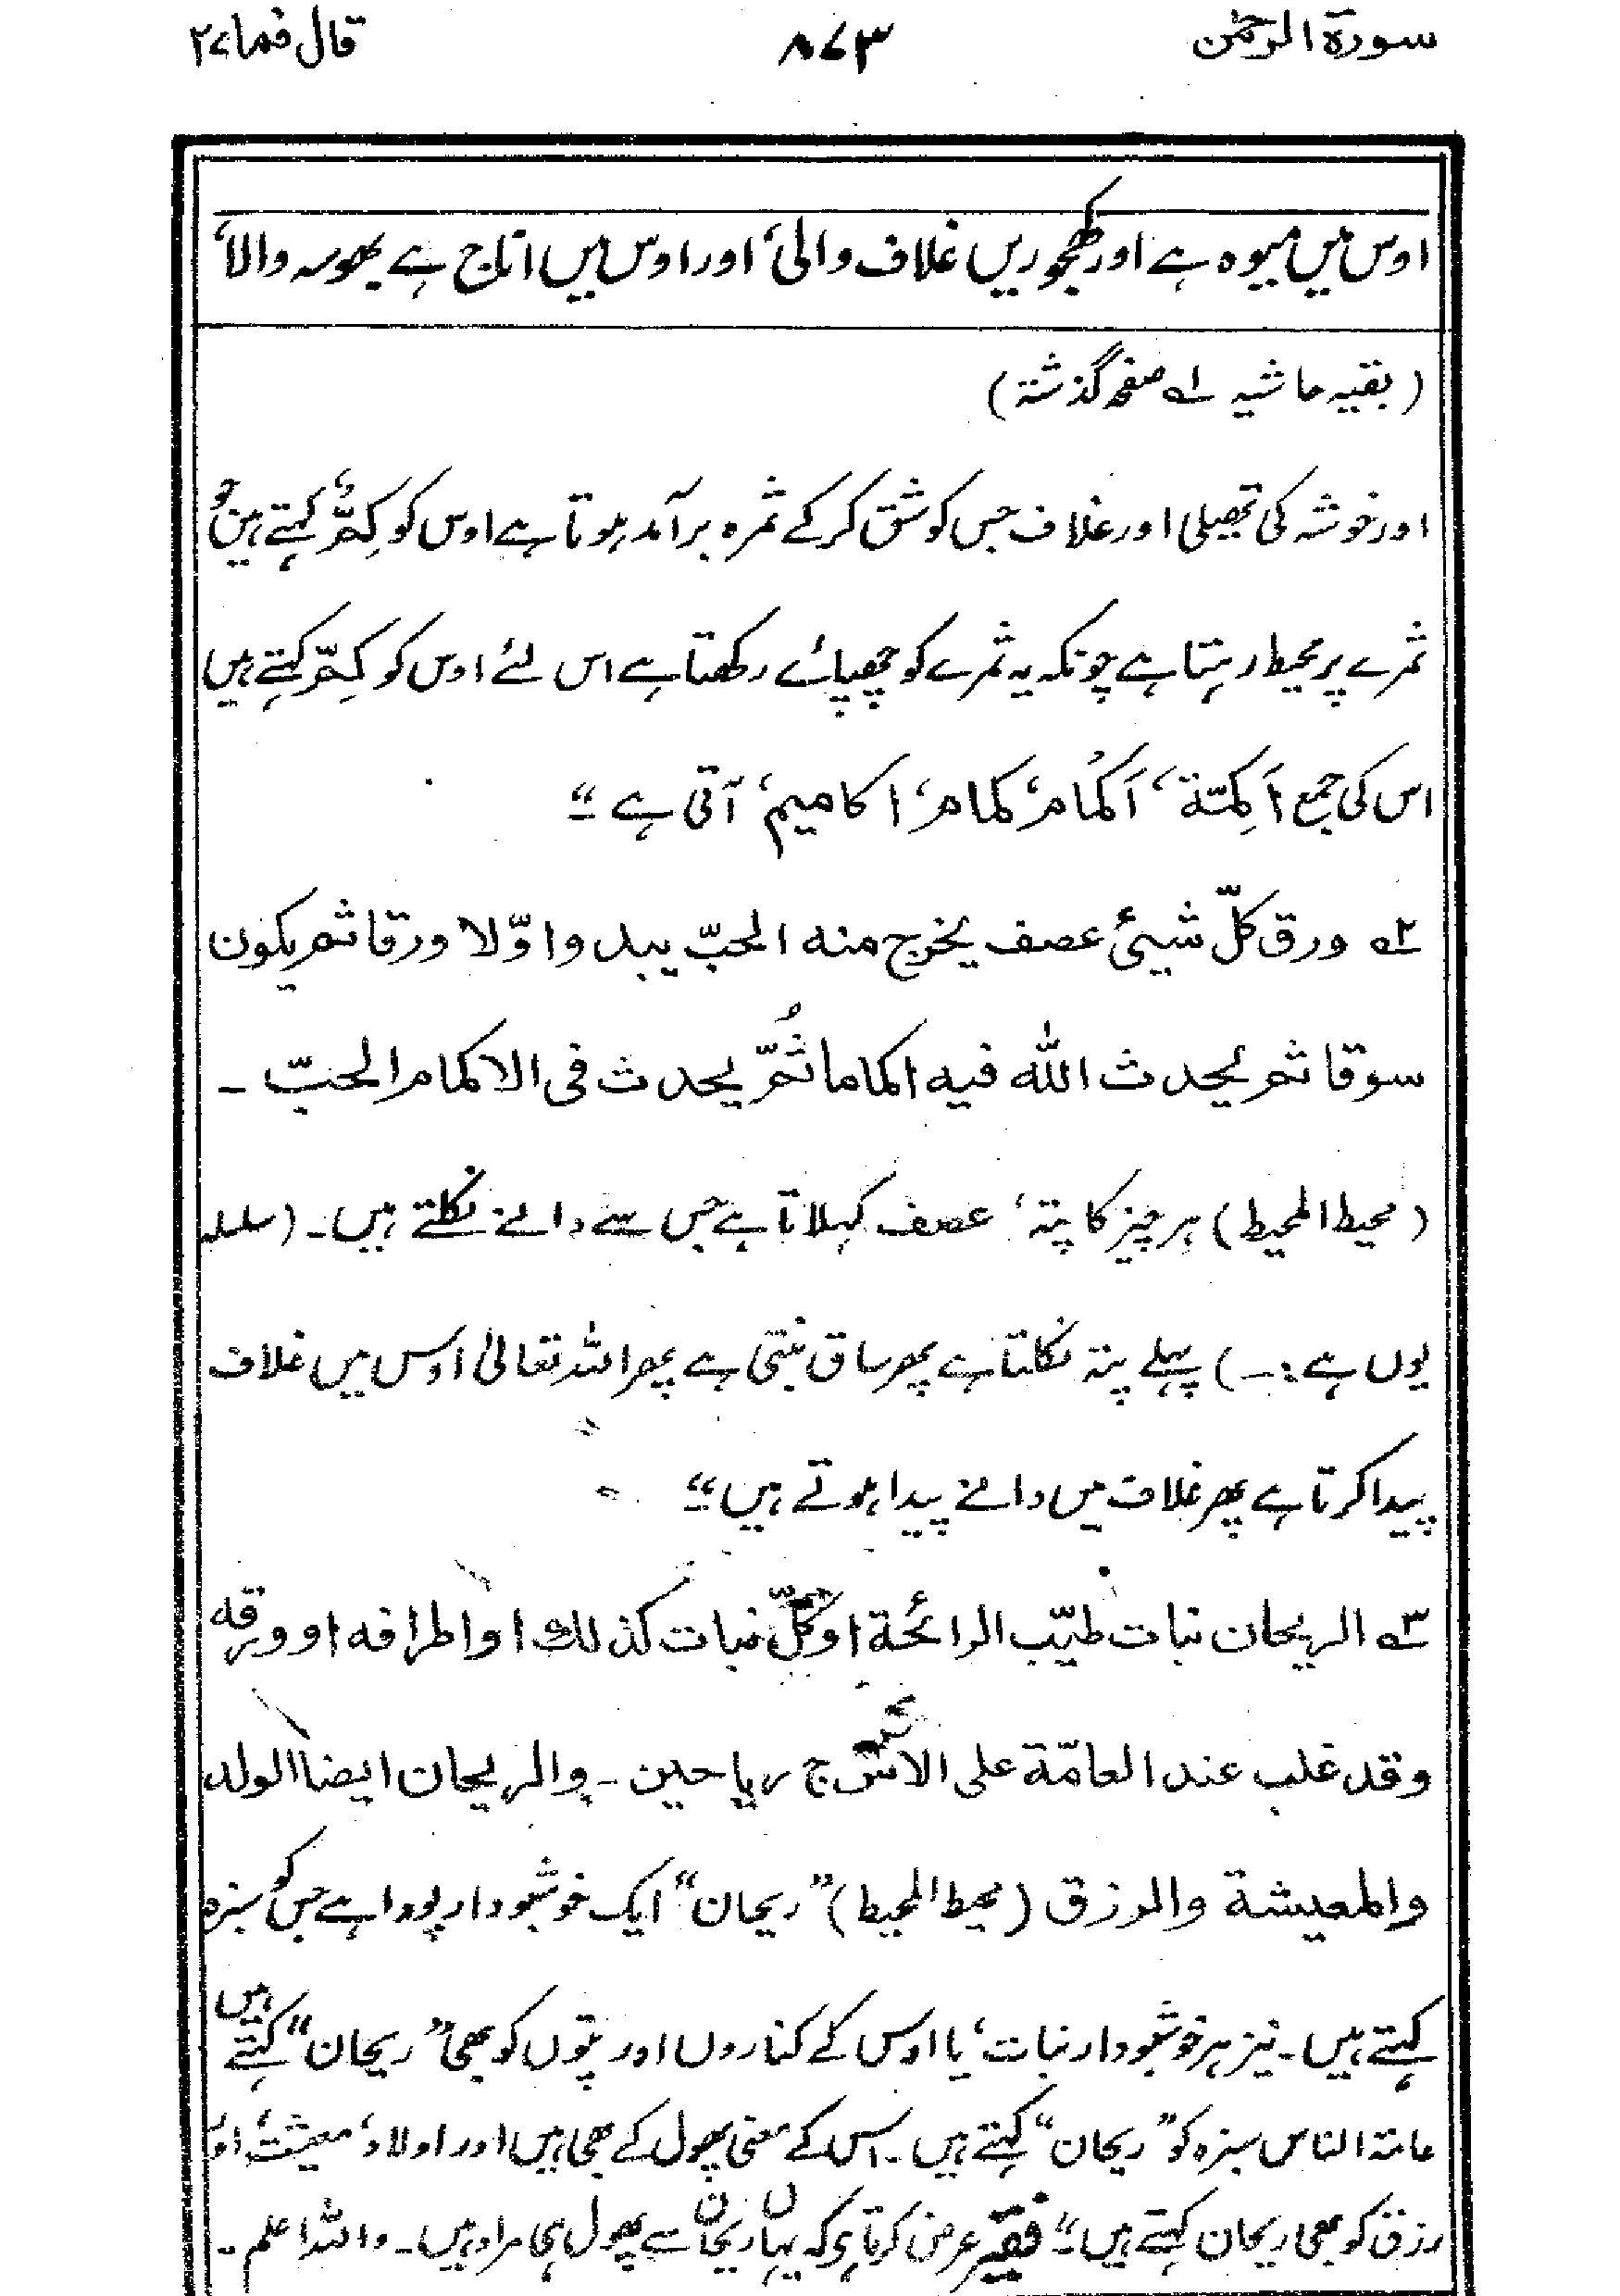 سورة الرحمٰن ۸۷۳ قال فما ۲۷
اوس میں میوہ ہے اور کھجوریں غلاف والی، اور اوس میں اناج ہے بھوسہ والا،
(بقیہ حاشیہ ۱؎ صفحہ گذشتہ)
اور خوشہ کی تھیلی اور غلاف جس کو شق کر کے ثمرہ برآمد ہوتا ہے اوس کو کِمٌّ، کہتے ہیں جو
ثمرے پر محیط رہتا ہے چونکہ یہ ثمرے کو چھپائے رکھتا ہے اس لئے اوس کو کِمّ کہتے ہیں
اس کی جمع اَکِمّة، اَکمُام، کمام، اکامیم، آتی ہے“
۲؎ ورق کلّ شیئ عصف یخرج منه الحبّ یبدو اوّلا ورقا ثم یکون
سوقا ثم یحدث اللّٰه فیه اکماما ثُمّ یحدث فی الاکمام الحبّ ۔
(محیط المحیط) ہر چیز کا پتہ، عصف کہلاتا ہے جس سے دانے نکلتے ہیں۔ (سلسلہ
یوں ہے :۔) پہلے پتہ نکلتا ہے پھر ساق بنتی ہے پھر اللہ تعالیٰ اوس میں غلاف
پیدا کرتا ہے پھر غلاف میں دانے پیدا ہوتے ہیں“
۳؎ الریحان نبات طیّب الرائحة او کلّ نبات کذلك او اطرافه او ورقه
وقد غلب عند العامّة علی ج ریاحین ۔ والریحان ایضا الولد
والمعیشة والرزق (محیط المحیط) ”ریحان“ ایک خوشبودار پودا ہے جس کو سبزہ
کہتے ہیں۔ نیز ہر خوشبودار نبات، یا اوس کے کناروں اور پتوں کو بھی ”ریحان“ کہتے ہیں
عامۃ الناس سبزہ کو ”ریحان“ کہتے ہیں۔ اس کے معنی پھول کے بھی ہیں اور اولاد، معیشت، اور
رزق کو بھی ریحان کہتے ہیں“ فقیر عرض کرتا ہی کہ یہاں ریحان سے پھول ہی مراد ہیں۔ واللہ اعلم ۔